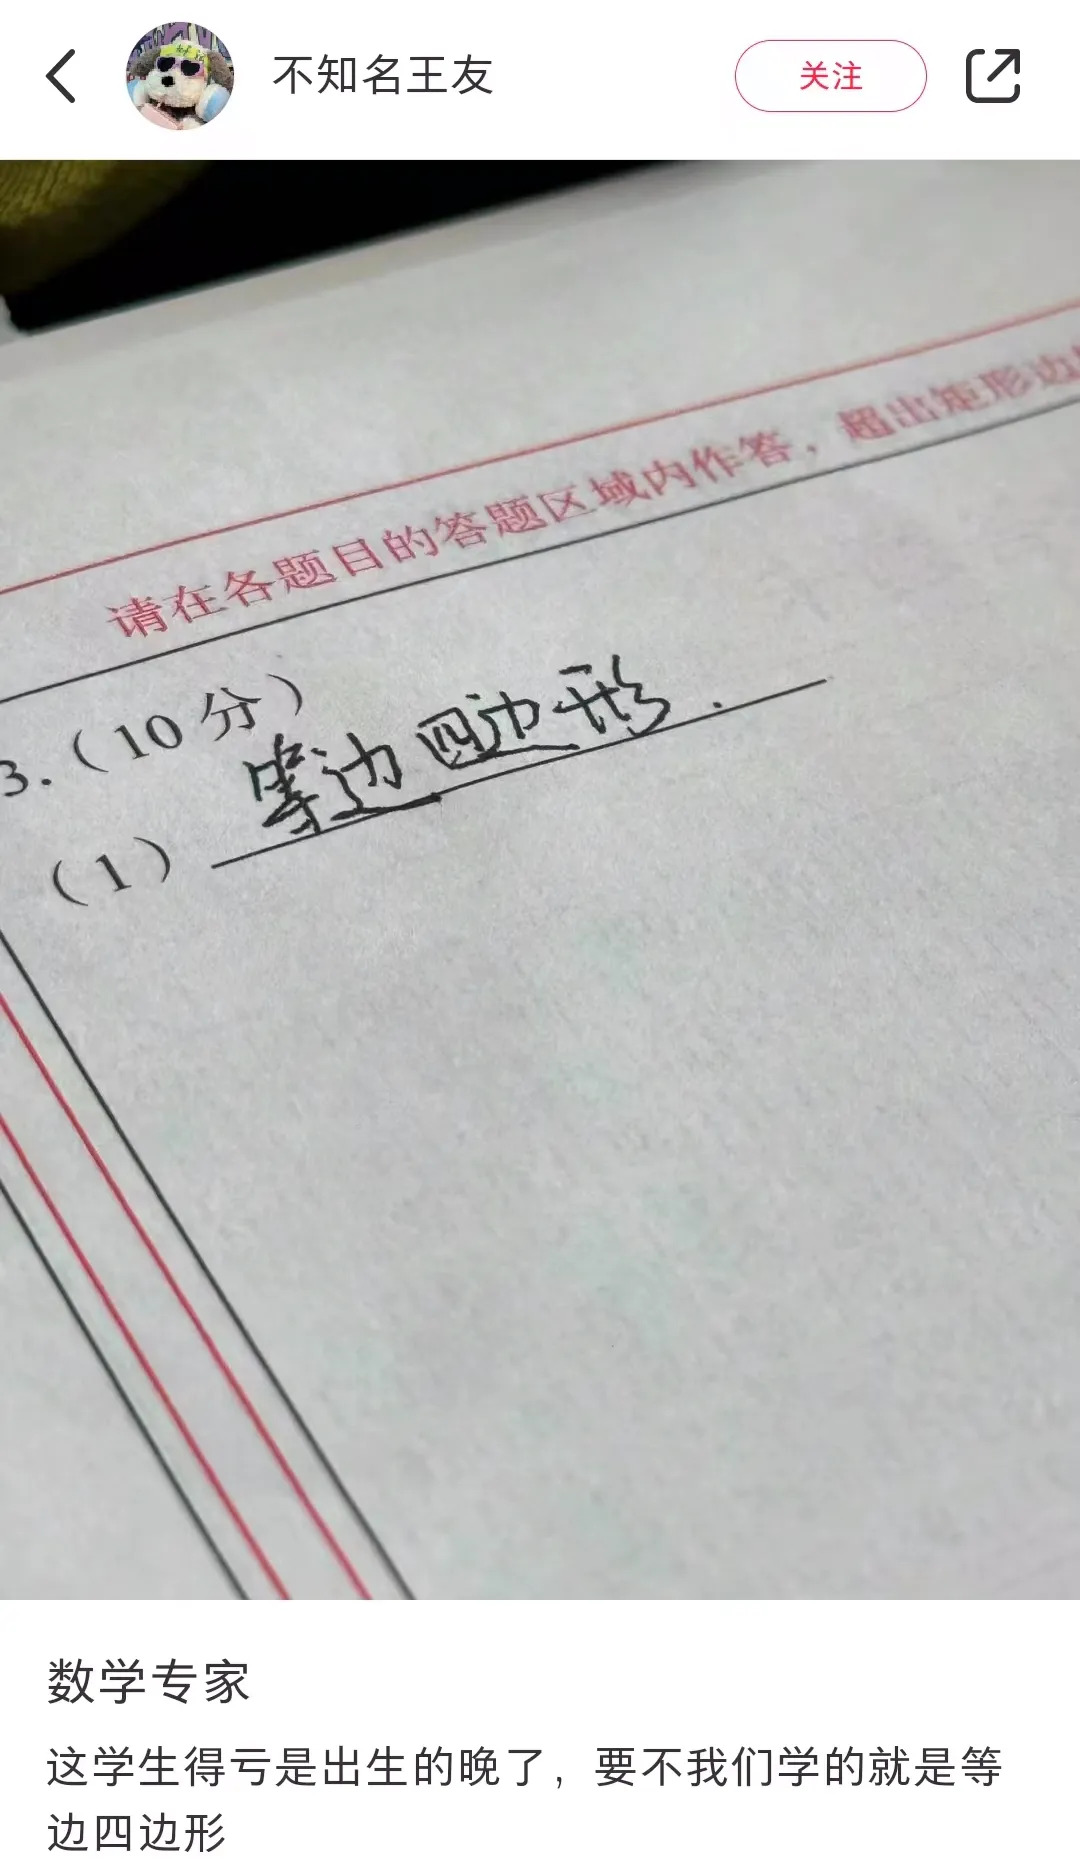 不知名王友
关注
请在各题目的答题区域内作答，超出矩形边
3.（10分）
等边四边形.
（1）
数学专家
这学生得亏是出生的晚了，要不我们学的就是等
边四边形